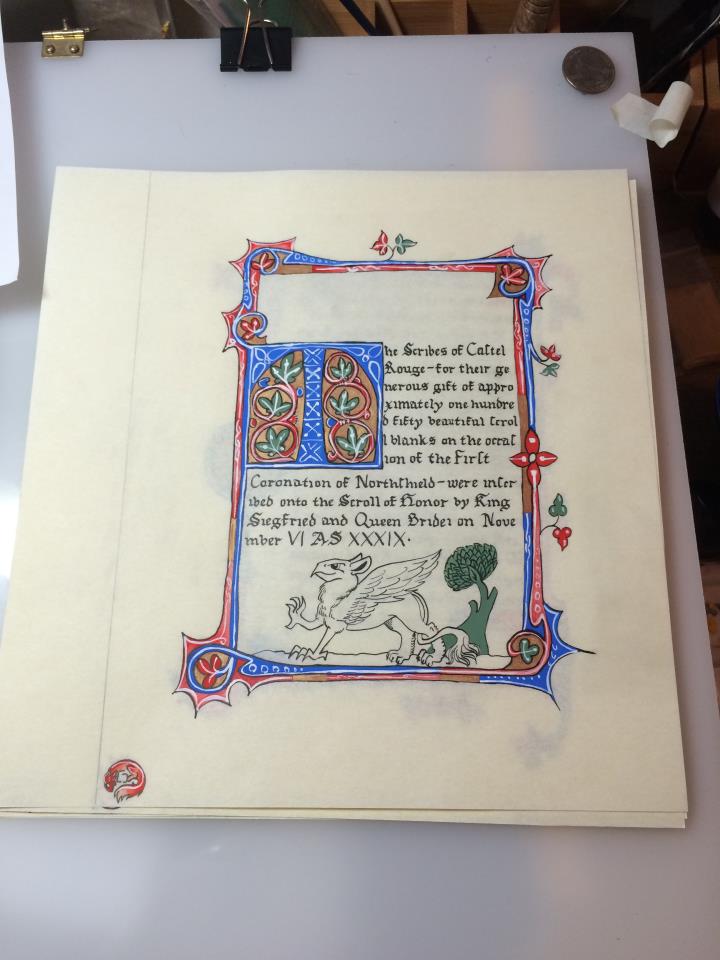 The Scribes of Castel
Rouge-for their ge
nerous gift of appro
ximately one hundre
d fifty beautiful scrol
l blanks on the occas
ion of the First
Coronation of Northshield-were inscr
ibed onto the Scroll of Honor by King
Siegfried and Queen Bridei on Nove
mber VI A.S XXXIX.